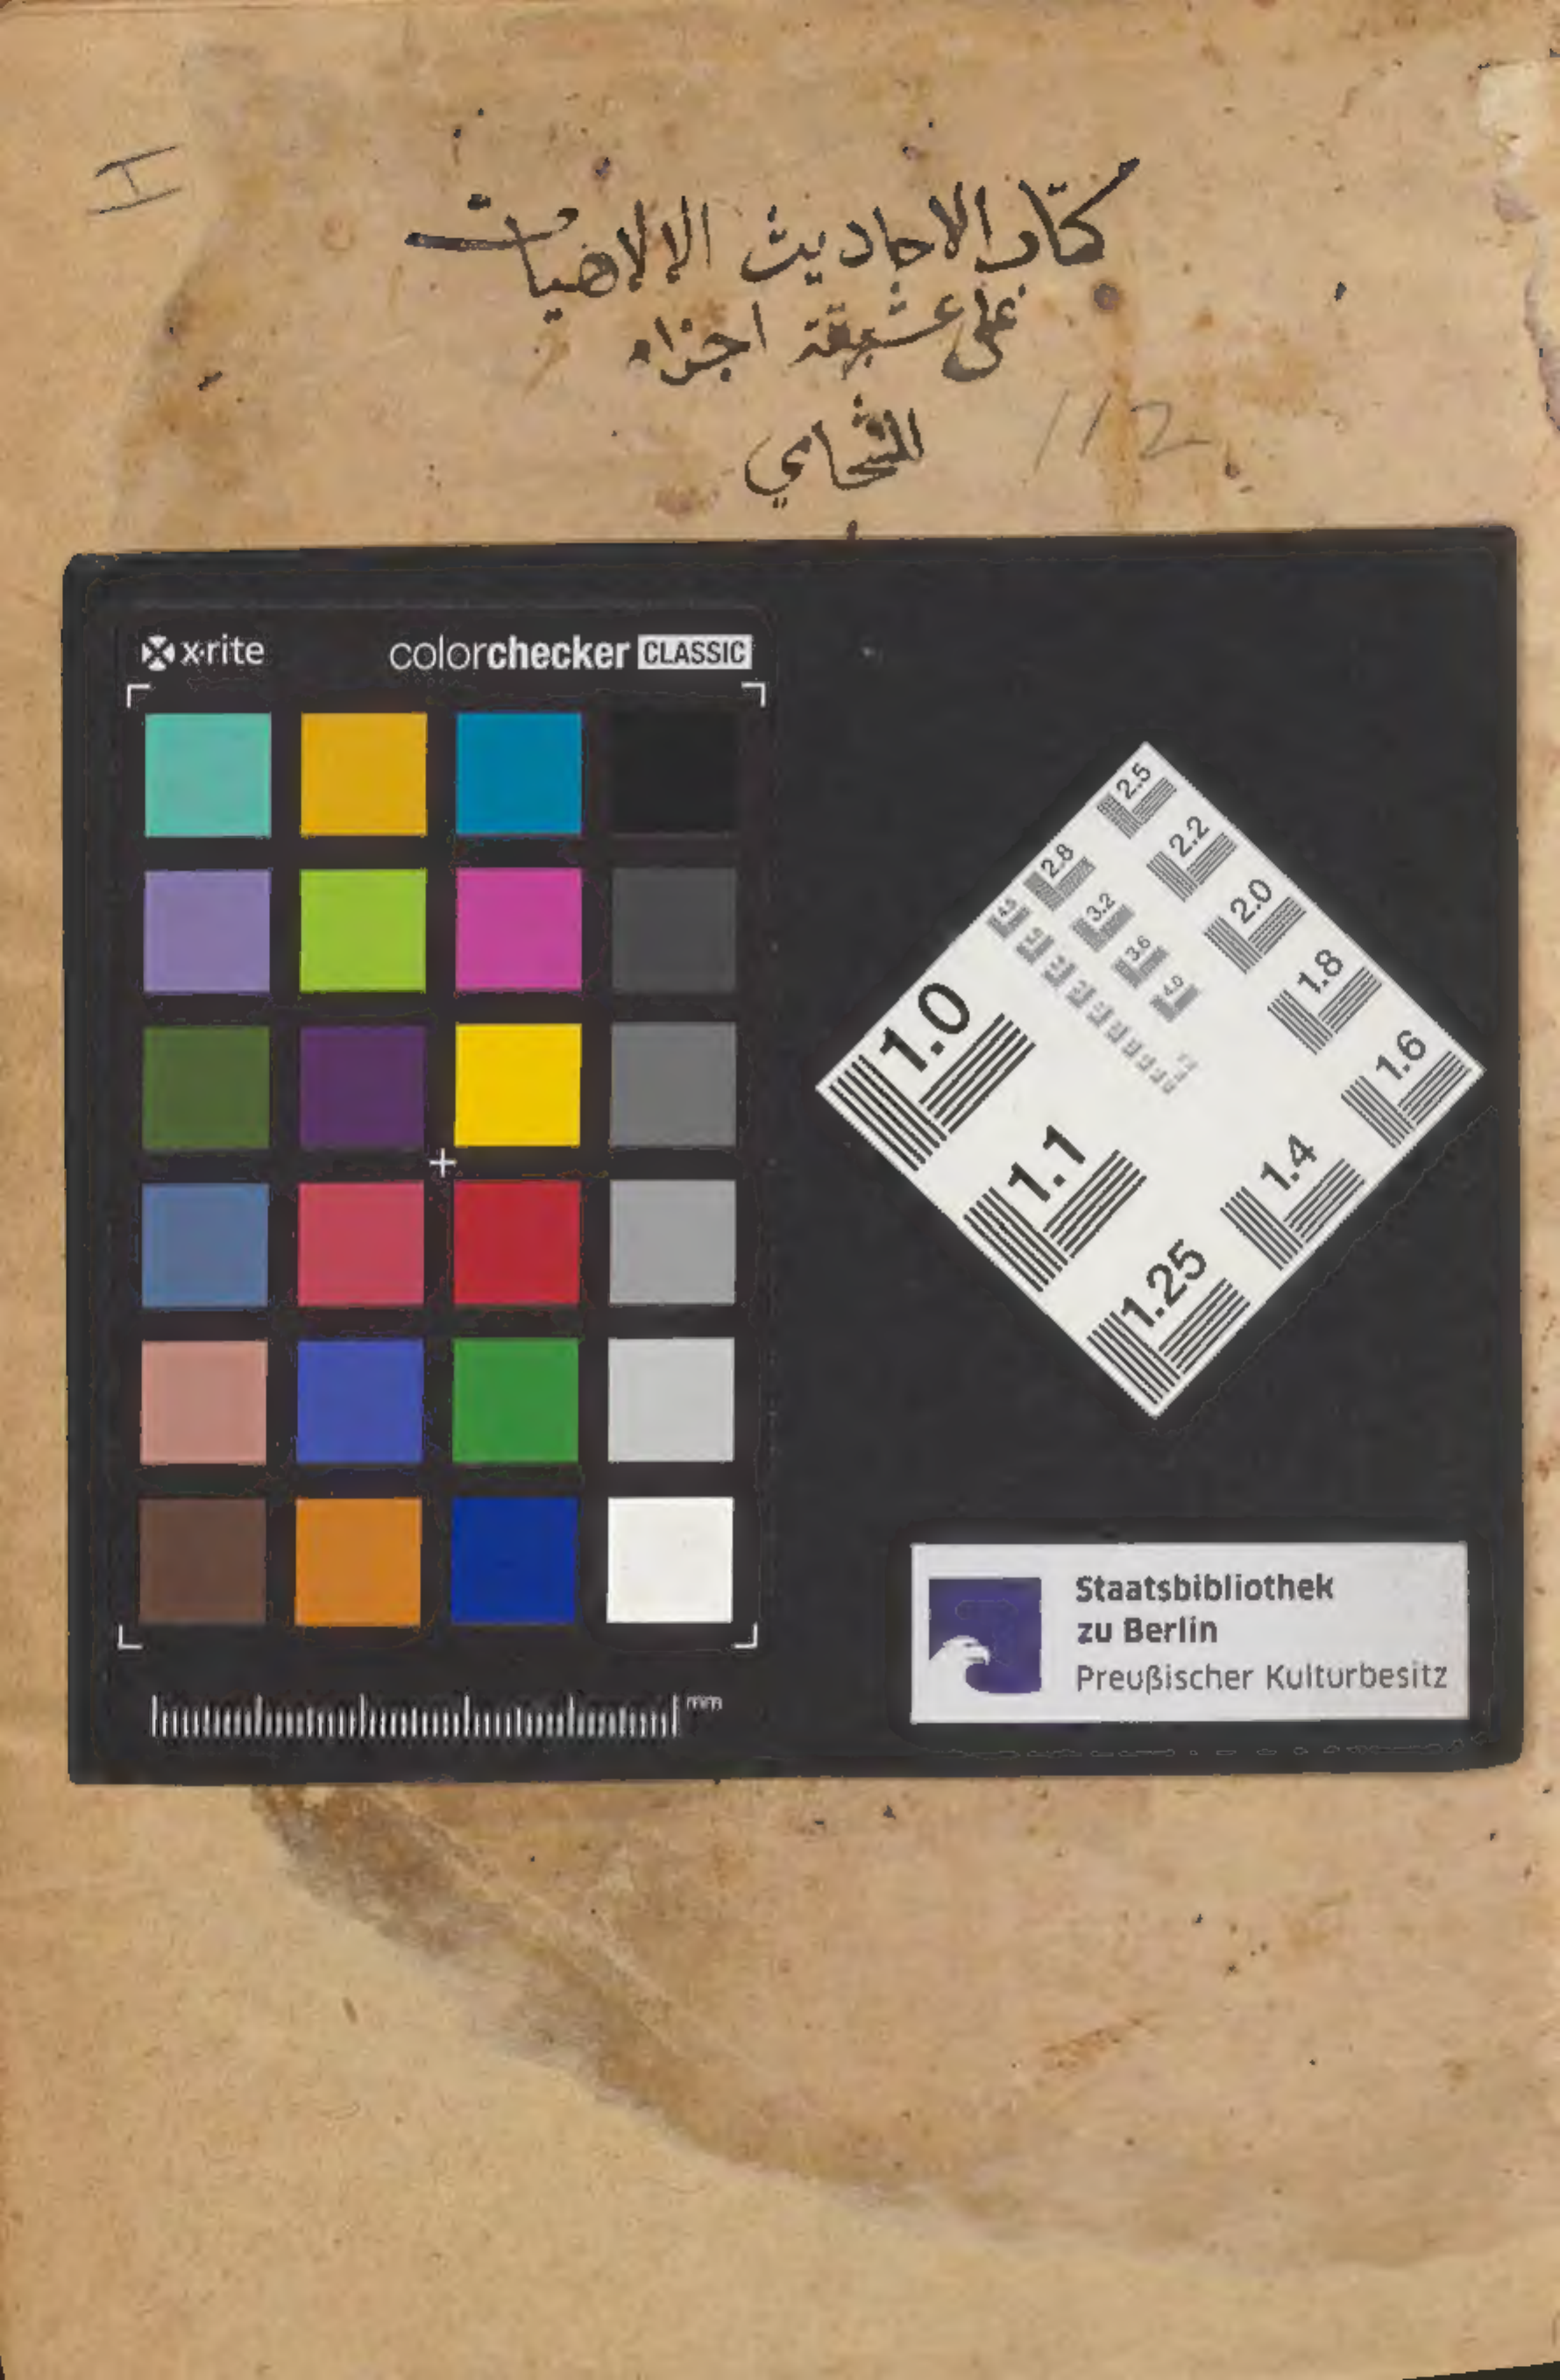 I
كتاب الاحاديث الالاهيات
على عشرة اجزاء
للشحامي
112
x·rite
colorchecker CLASSIC
2.5
2.2
2.8
2.0
4.5
3.2
1.8
3.6
4.0
1.0
1.6
1.1
1.4
1.25
Staatsbibliothek
zu Berlin
Preußischer Kulturbesitz
mm